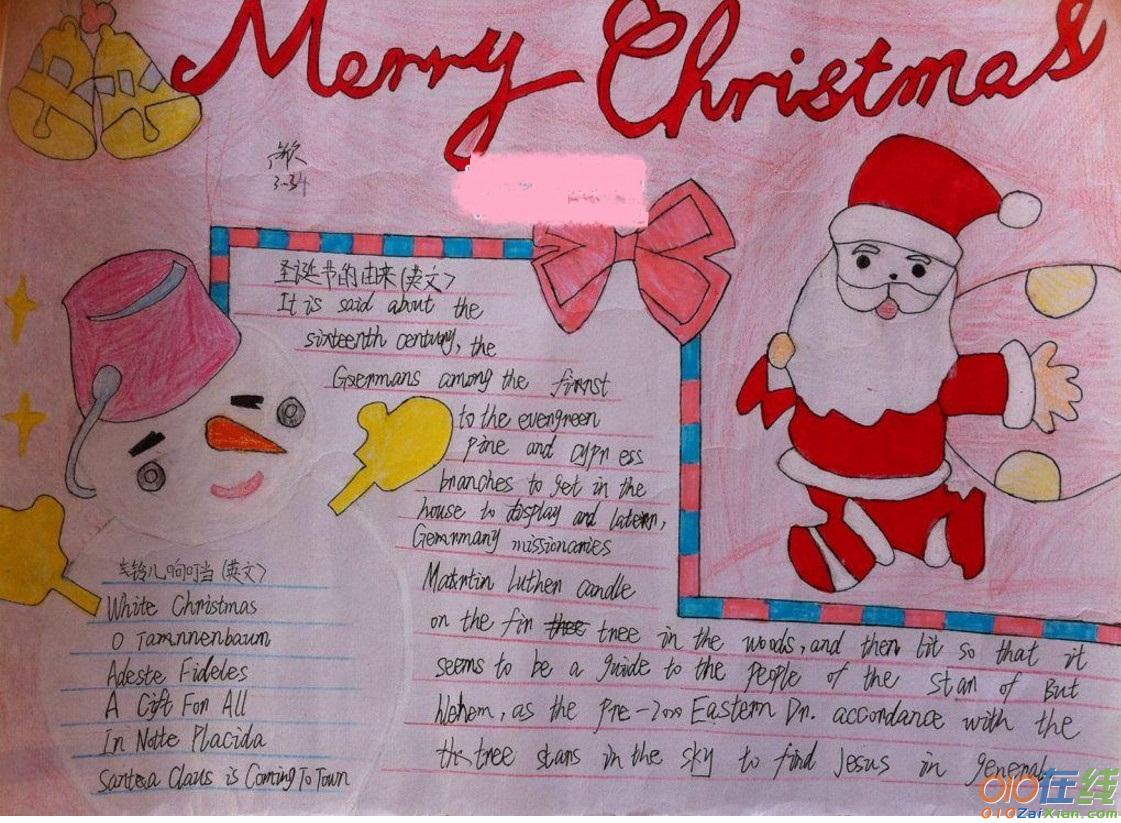 Merry Christmas
欣
3-34
圣诞节的由来(英文)
It is said about the
sixteenth century, the
Goermans among the finnst
to the evengreen
pine and cypress
branches to get in the
house to display and latenn,
Genrmany missionaries
Matntin Luthen candle
on the fin tree in the woods, and then lit so that it
seems to be a guide to the people of the stan of But
hem, as the pre-2000 Eastern Dn. accordance with the
the tree stans in the sky to find Jesus in general
铃儿响叮当(英文)
White Christmas
O Tamnnenbaum
Adeste Fideles
A Gift Fon All
In Notte Placida
Santa Claus is Coming To Town
010在线
010ZaiXian.com